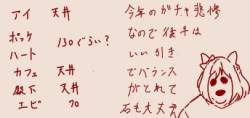 アイ 天井
ポッケ
ハート
130ぐらい?
カフェ 天井
殿下 天井
エビ 70
今年のガチャ悲惨
なので後半は
いい引き
でバランス
がとれて
石も大丈夫